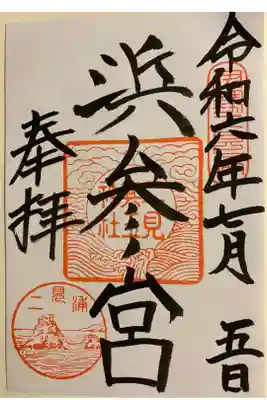 令和六年七月五日
浜参宮
奉拝
二見浦